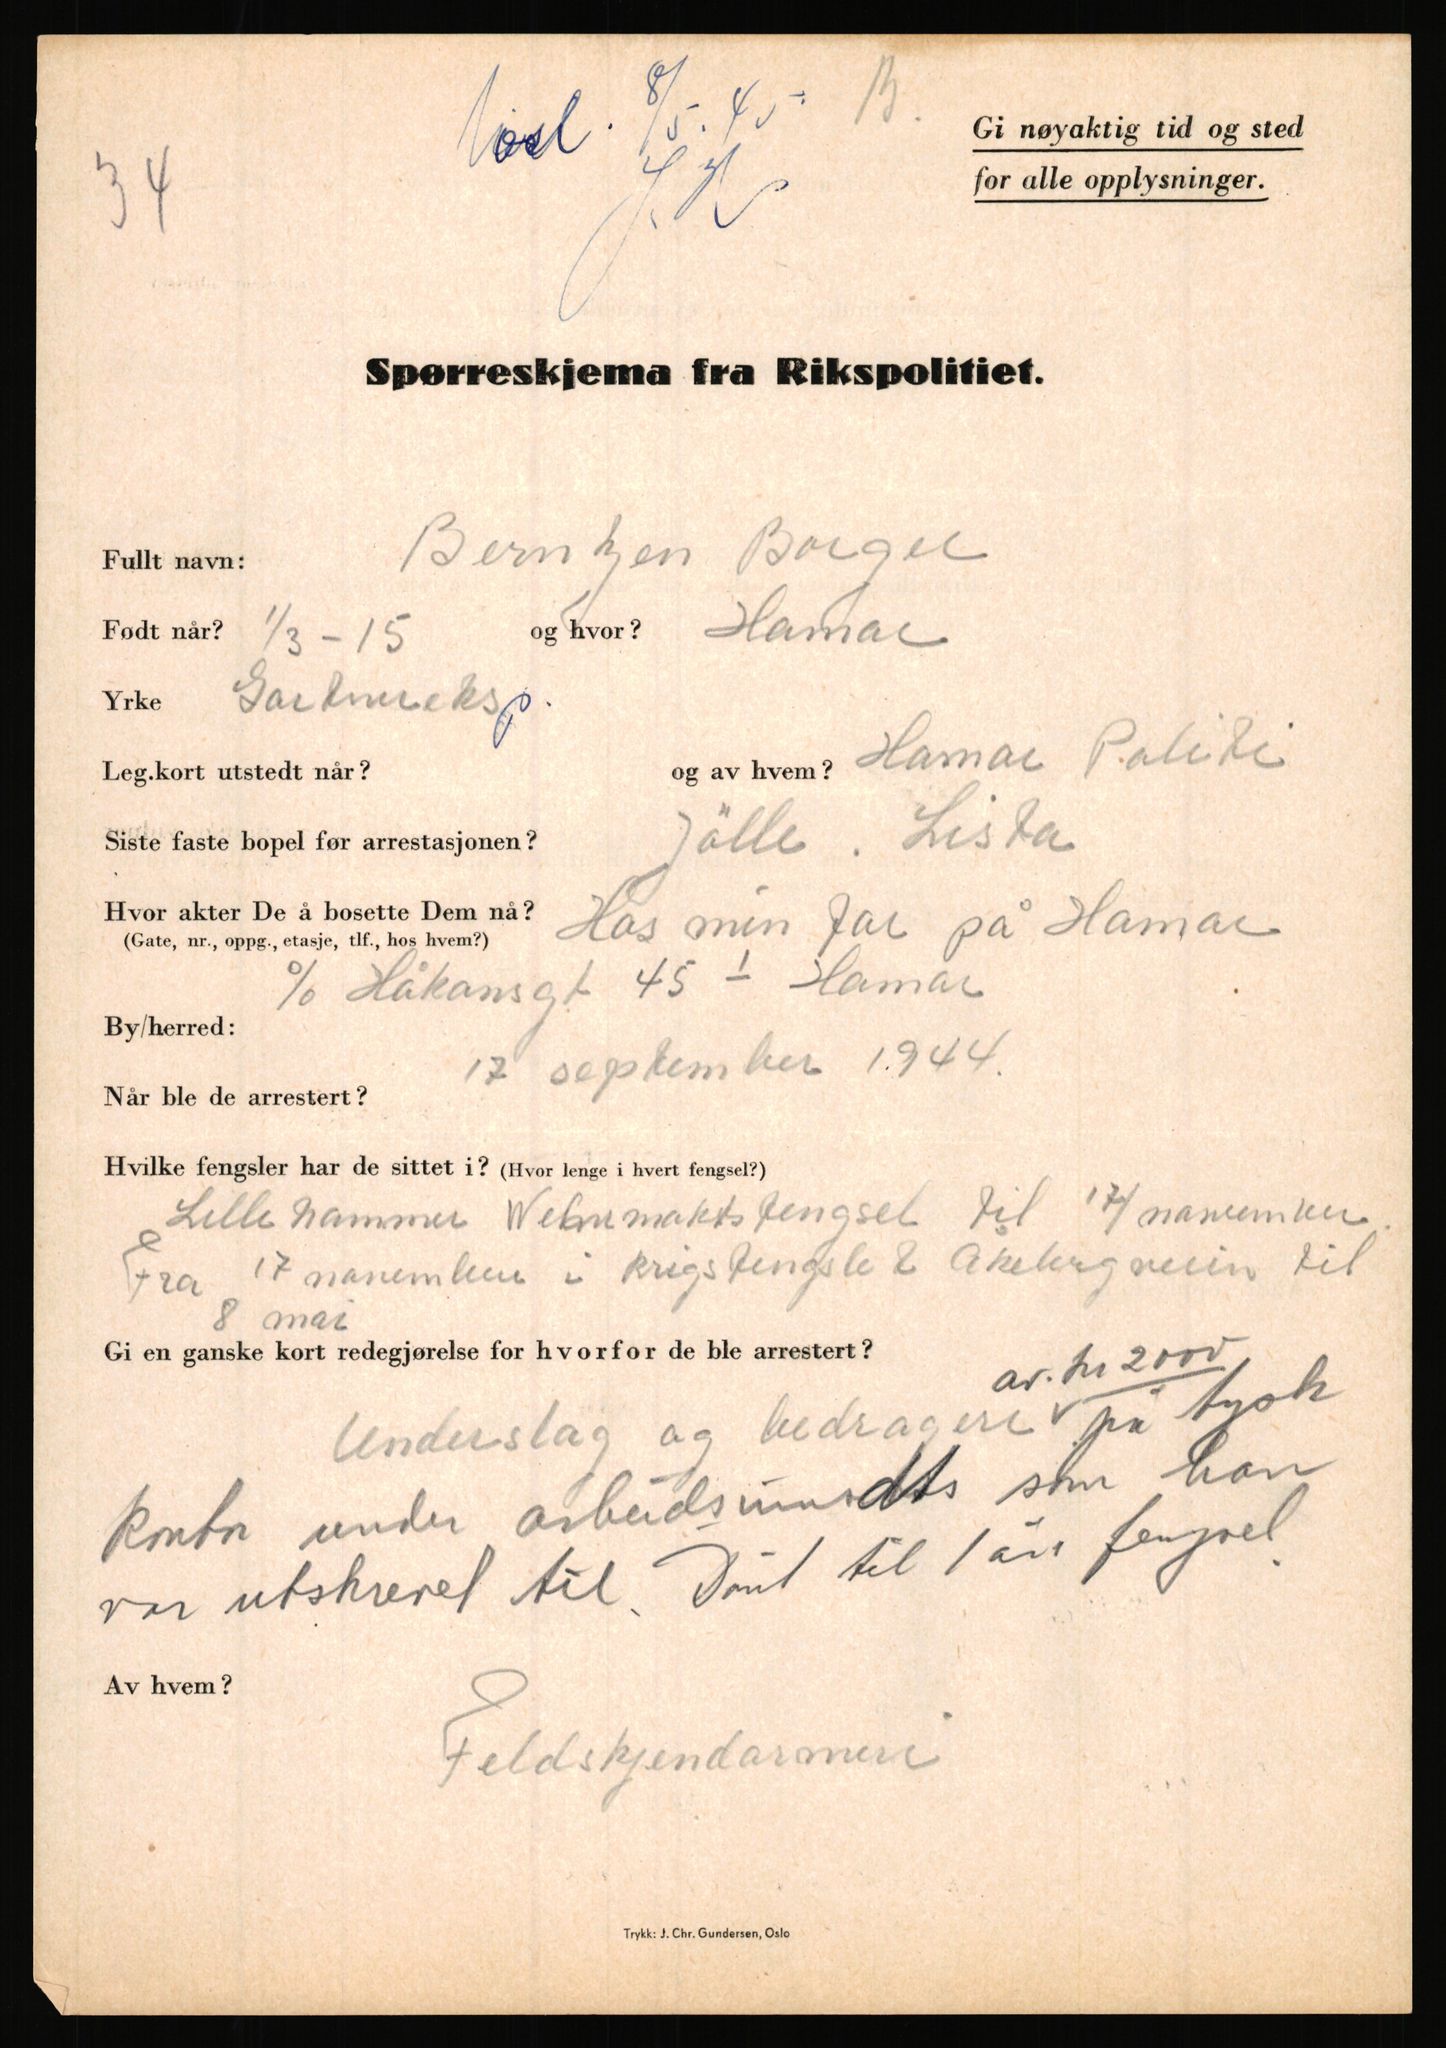 34
8/5.45 B.
J.K
Gi nøyaktig tid og sted
for alle opplysninger.
Spørreskjema fra Rikspolitiet.
Fullt navn: Berntzen Borger
Født når? 1/3-15 og hvor? Hamar
Yrke Gartnereksp.
Leg.kort utstedt når? og av hvem? Hamar Politi
Siste faste bopel før arrestasjonen? Jölle. Lista
Hvor akter De å bosette Dem nå? Hos min far på Hamar
(Gate, nr., oppg., etasje, tlf., hos hvem?)
% Håkonsgt 45 I Hamar
By/herred:
17 september 1.944.
Når ble de arrestert?
Hvilke fengsler har de sittet i? (Hvor lenge i hvert fengsel?)
Lillehammer Wehrmaktsfengsel til 17/november.
Fra 17 november i krigsfengslet Åkebergveien til
8 mai
Gi en ganske kort redegjørelse for hvorfor de ble arrestert?
av. kr 2000
Underslag og bedrageri på tysk
kontor under arbeids som han
var utskrevet til. Dömt til 1 års fengsel.
Av hvem?
Feldskjendarmeri
Trykk: J. Chr. Gundersen, Oslo